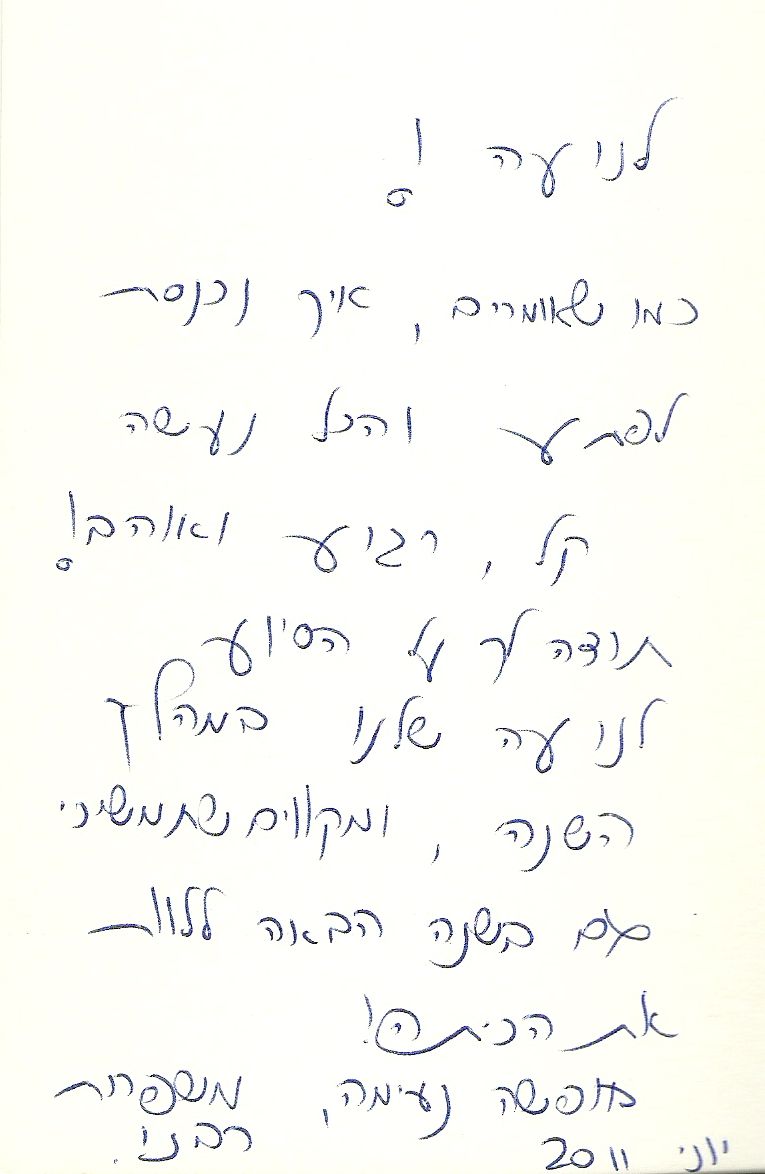 לנועה !
כמו שאומרים, איך נכנסת
לפתע והכל נעשה
קל, רגוע ואוהב!
תודה לך על הסיוע
לנועה שלנו במהלך
השנה, ומקווים שתמשיכי
גם בשנה הבאה ללוות
את הכיתה!
חופשה נעימה, משפחת
רבני.
יוני 2011